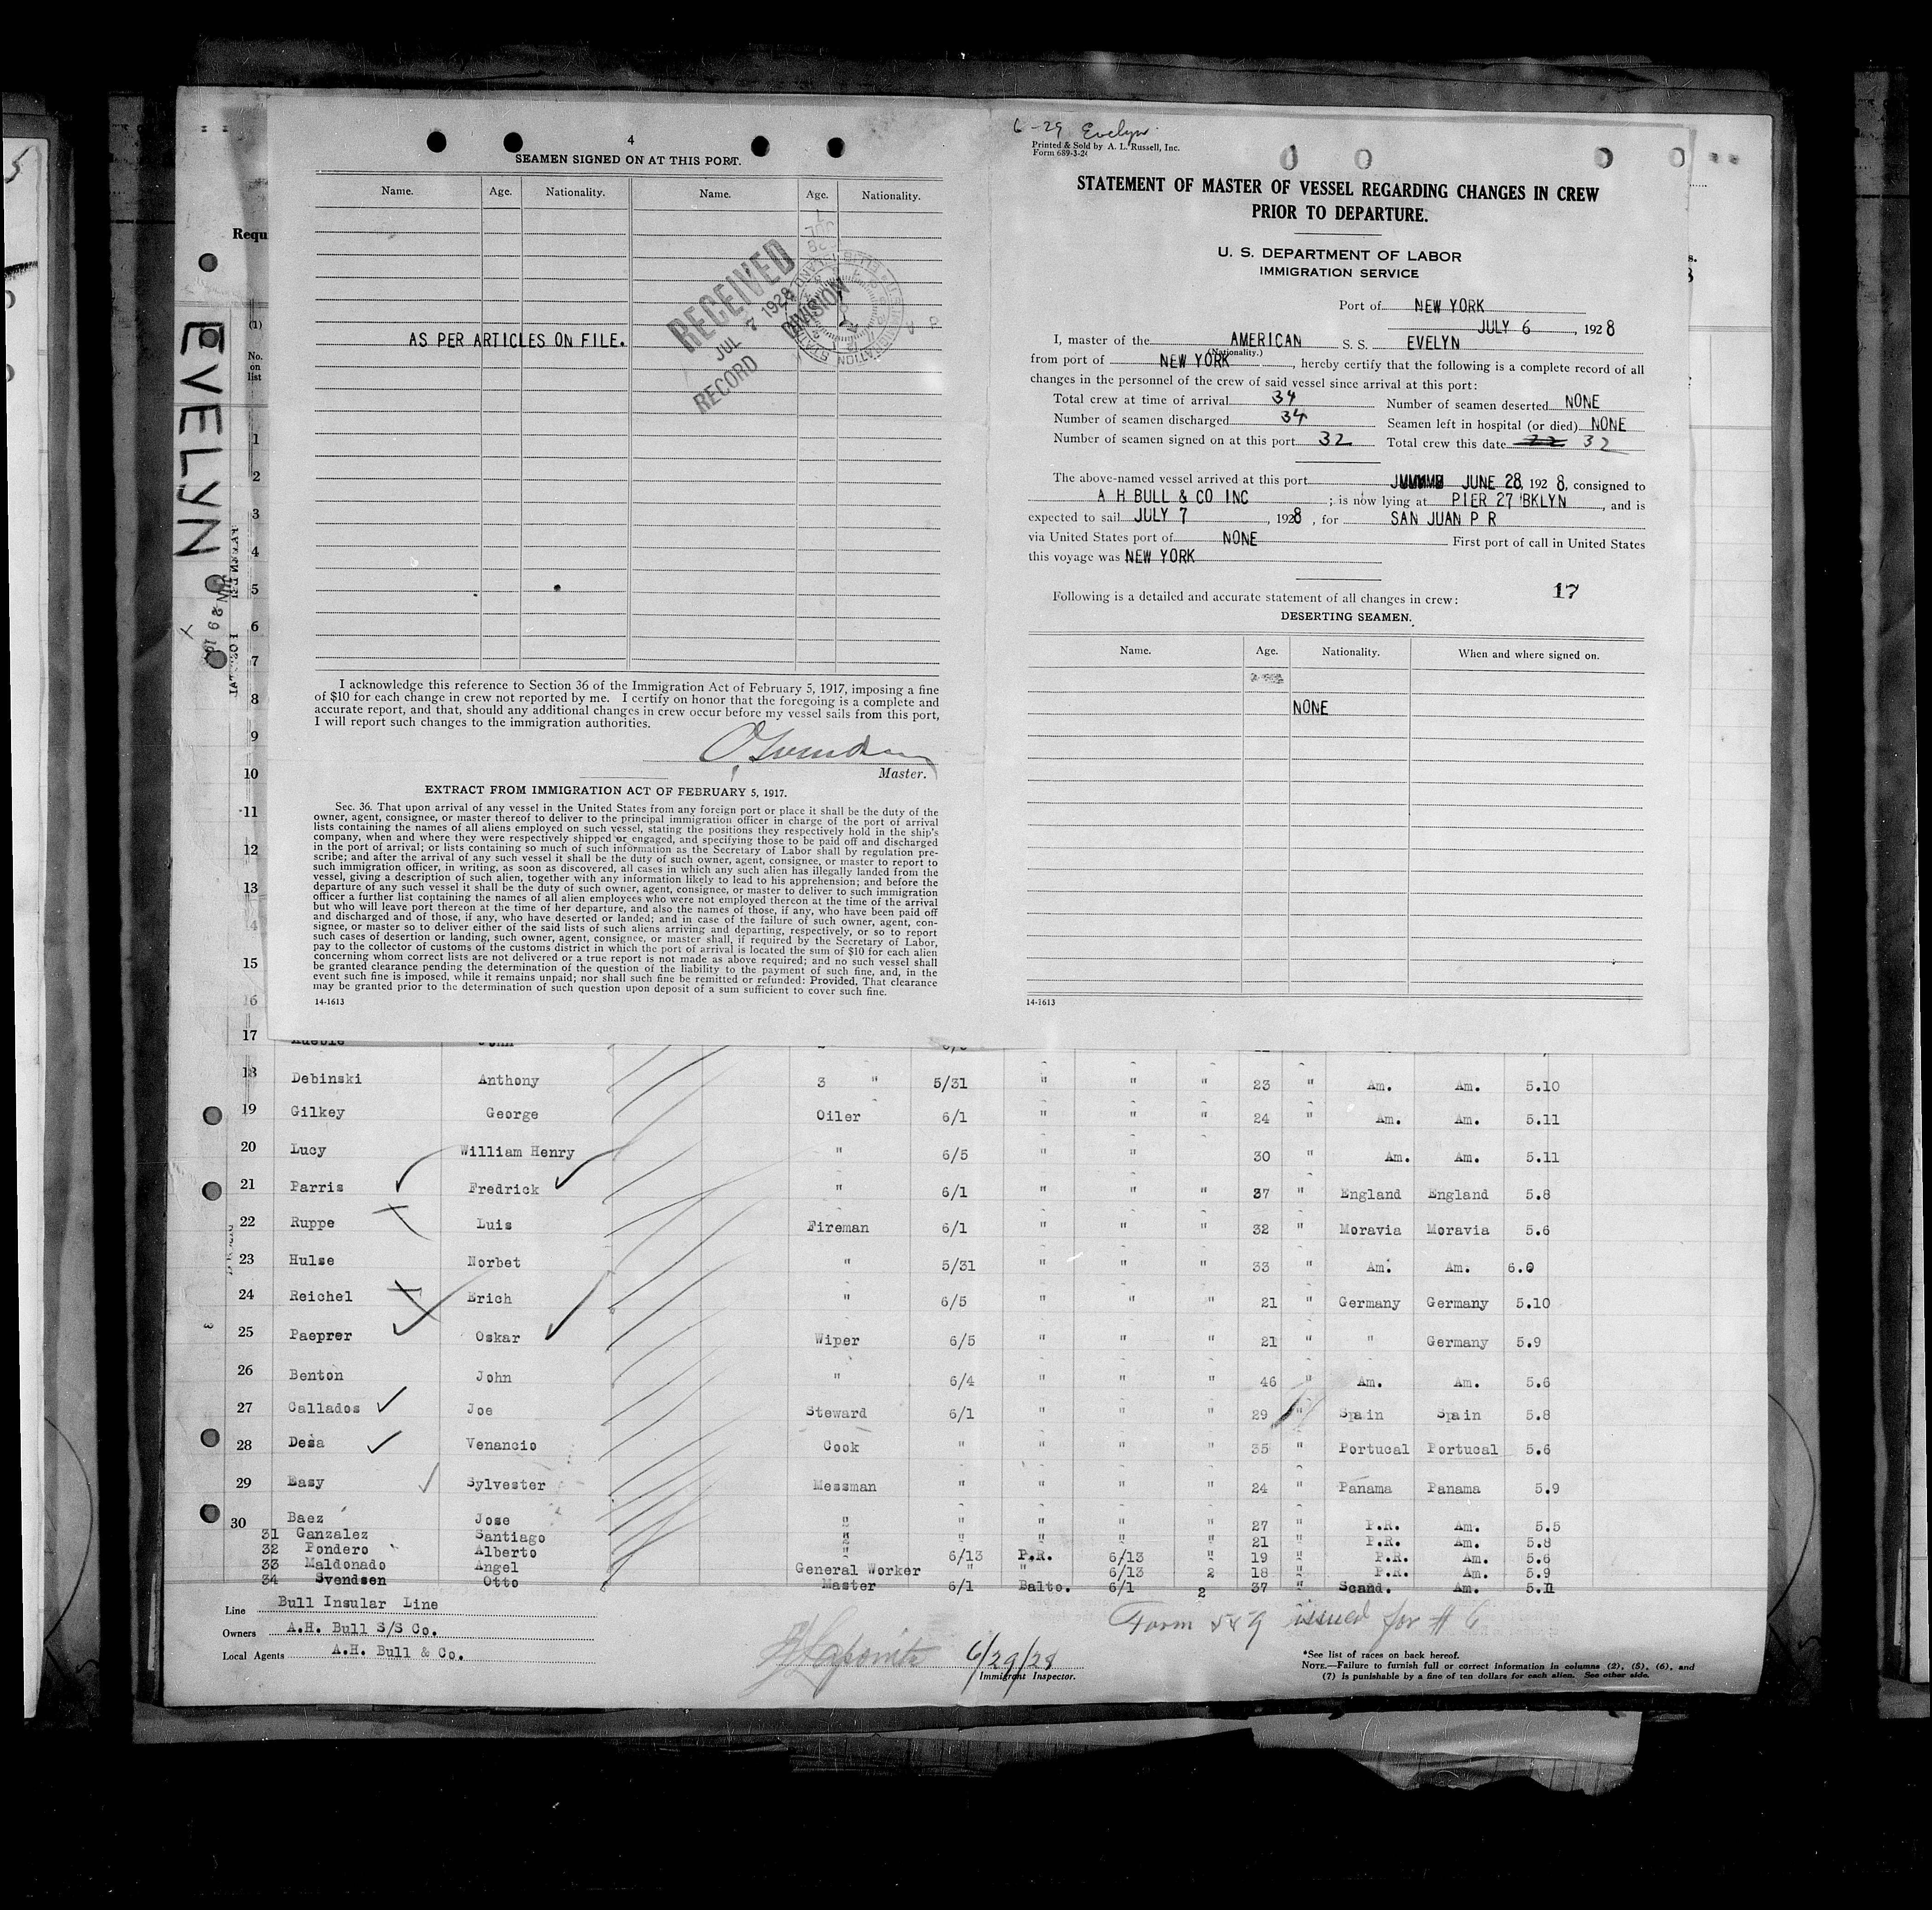 4
SEAMEN SIGNED ON AT THIS PORT.
Name. Age. Nationality. Name. Age. Nationality.
AS PER ARTICLES ON FILE.
RECEIVED
JUL 7 1928
RECORD DIVISION
I acknowledge this reference to Section 36 of the Immigration Act of February 5, 1917, imposing a fine
of $10 for each change in crew not reported by me. I certify on honor that the foregoing is a complete and
accurate report, and that, should any additional changes in crew occur before my vessel sails from this port,
I will report such changes to the immigration authorities.
Master.
EXTRACT FROM IMMIGRATION ACT OF FEBRUARY 5, 1917.
Sec. 36. That upon arrival of any vessel in the United States from any foreign port or place it shall be the duty of the
owner, agent, consignee, or master thereof to deliver to the principal immigration officer in charge of the port of arrival
lists containing the names of all aliens employed on such vessel, stating the positions they respectively hold in the ship's
company, when and where they were respectively shipped or engaged, and specifying those to be paid off and discharged
in the port of arrival; or lists containing so much of such information as the Secretary of Labor shall by regulation pre-
scribe; and after the arrival of any such vessel it shall be the duty of such owner, agent, consignee, or master to report to
such immigration officer, in writing, as soon as discovered, all cases in which any such alien has illegally landed from the
vessel, giving a description of such alien, together with any information likely to lead to his apprehension; and before the
departure of any such vessel it shall be the duty of such owner, agent, consignee, or master to deliver to such immigration
officer a further list containing the names of all alien employees who were not employed thereon at the time of the arrival
but who will leave port thereon at the time of her departure, and also the names of those, if any, who have been paid off
and discharged and of those, if any, who have deserted or landed; and in case of the failure of such owner, agent, con-
signee, or master so to deliver either of the said lists of such aliens arriving and departing, respectively, or so to report
such cases of desertion or landing, such owner, agent, consignee, or master shall, if required by the Secretary of Labor,
pay to the collector of customs of the customs district in which the port of arrival is located the sum of $10 for each alien
concerning whom correct lists are not delivered or a true report is not made as above required; and no such vessel shall
be granted clearance pending the determination of the question of the liability to the payment of such fine, and, in the
event such fine is imposed, while it remains unpaid; nor shall such fine be remitted or refunded: Provided, That clearance
may be granted prior to the determination of such question upon deposit of a sum sufficient to cover such fine.
14-1613
6-29 Evelyn
Printed & Sold by A. L. Russell, Inc.
Form 689-3-26
STATEMENT OF MASTER OF VESSEL REGARDING CHANGES IN CREW
PRIOR TO DEPARTURE.
U. S. DEPARTMENT OF LABOR
IMMIGRATION SERVICE
Port of NEW YORK
JULY 6, 1928
I, master of the AMERICAN S. S. EVELYN
(Nationality.)
from port of NEW YORK, hereby certify that the following is a complete record of all
changes in the personnel of the crew of said vessel since arrival at this port:
Total crew at time of arrival 34 Number of seamen deserted NONE
Number of seamen discharged 34 Seamen left in hospital (or died) NONE
Number of seamen signed on at this port 32 Total crew this date 32
The above-named vessel arrived at this port JUNE 28, 1928, consigned to
A H BULL & CO INC; is now lying at PIER 27 BKLYN, and is
expected to sail JULY 7, 1928, for SAN JUAN P R
via United States port of NONE First port of call in United States
this voyage was NEW YORK
17
Following is a detailed and accurate statement of all changes in crew:
DESERTING SEAMEN.
Name. Age. Nationality. When and where signed on.
NONE
14-1613
Requ
EVELYN
(1)
No.
on
list
1
2
3
4
5
6
7
8
9
10
11
12
13
4
15
16
17
18 Debinski Anthony 3 " 5/31 " " " 23 " Am. Am. 5.10
19 Gilkey George Oiler 6/1 " " " 24 " Am. Am. 5.11
20 Lucy William Henry " 6/5 " " 30 " Am. Am. 5.11
21 Parris Fredrick " 6/1 " " " 37 " England England 5.8
22 Ruppe Luis Fireman 6/1 " " " 32 " Moravia Moravia 5.6
23 Hulse Norbet " 5/31 " " " 33 " Am. Am. 6.0
24 Reichel Erich " 6/5 " " " 21 " Germany Germany 5.10
25 Paeprer Oskar Wiper 6/5 " " " 21 " " Germany 5.9
26 Benton John " 6/4 " " " 46 " Am. Am. 5.6
27 Callados Joe Steward 6/1 " " " 29 " Spain Spain 5.8
28 Desa Venancio Cook " " " " 35 " Portugal Portugal 5.6
29 Easy Sylvester Messman " " " " 24 " Panama Panama 5.9
30 Baez Jose " " " " " 27 " P.R. Am. 5.5
31 Ganzalez Santiago " " " " " 21 " P.R. Am. 5.8
32 Pondero Alberto " 6/13 P.R. 6/13 " 19 " P.R. Am. 5.6
33 Maldonado Angel General Worker " " 6/13 2 18 " P.R. Am. 5.9
34 Svendsen Otto Master 6/1 Balto. 6/1 2 37 " Scand. Am. 5.11
Line Bull Insular Line
Owners A.H. Bull S/S Co.
Local Agents A.H. Bull & Co.
6/29/28
Immigrant Inspector.
Form 589 issued for # 6
*See list of races on back hereof.
NOTE.—Failure to furnish full or correct information in columns (2), (5), (6), and
(7) is punishable by a fine of ten dollars for each alien. See other side.